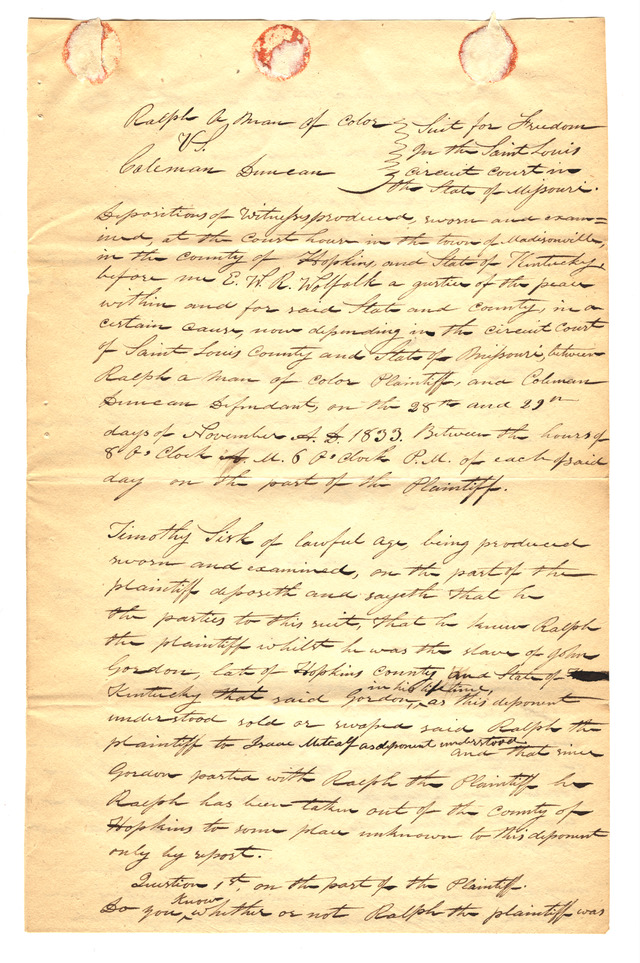 Ralph A Man of Color
VS.
Coleman Duncan
Suit for Freedom
In the Saint Louis
circuit court in
the State of Missouri.
Depositions of Witnesses produced, sworn and exam=
ined, at the Court house in the town of Madisonville,
in the county of Hopkins, and State of Kentucky,
before me E. W. R. Wolfalk a justice of the peace
within and for said State and County, in a
certain cause, now depending in the circuit Court
of Saint Louis County and State of Missouri, between
Ralph a man of color Plaintiff, and Coleman
Duncan Defendant, on the 28th and 29th
days of November A.D. 1833. Between the hours of
8 O'Clock A. M. 6 O'Clock P.M. of each of said
day on the part of the Plaintiff.
Timothy Sisk of lawful age, being produced
sworn and examined, on the part of the
plaintiff deposeth and sayeth that he
the parties to this suit, that he knew Ralph
the plaintiff whilst he was the slave of John
Gordon, late of Hopkins County and State of
Kentucky that said Gordon, in his lifetime, as this deponent
understood sold or swaped said Ralph the
plaintiff to Isaac Metcalf as deponent understood and that since
Gordon parted with Ralph the Plaintiff he
Ralph has been taken out of the County of
Hopkins to some place unknown to this deponent
only by report.
Question 1st, on the part of the Plaintiff.
Do you know, whether or not Ralph the plaintiff was